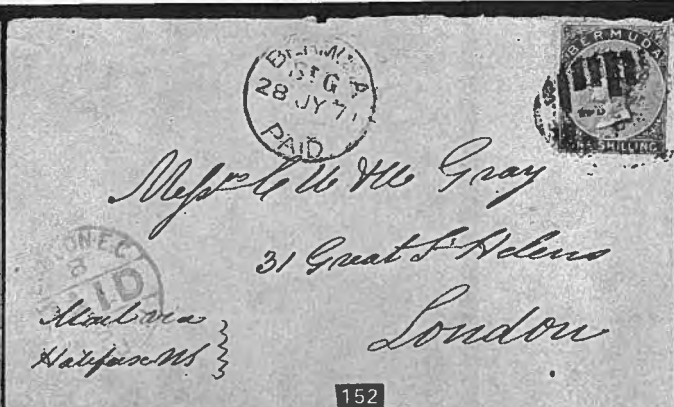 BERMUDA
St G
28 JY 71
PAID
BERMUDA
ONE SHILLING
Messrs Gray
31 Great St Helens
London
LONDON E.C
PAID
Mail via
Halifax NS
152